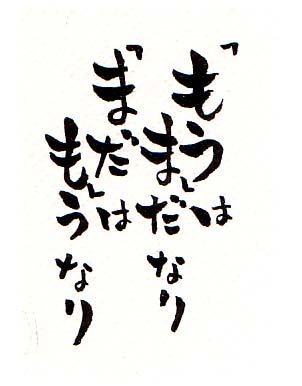 「もう」は
まだなり
「まだ」は
もうなり